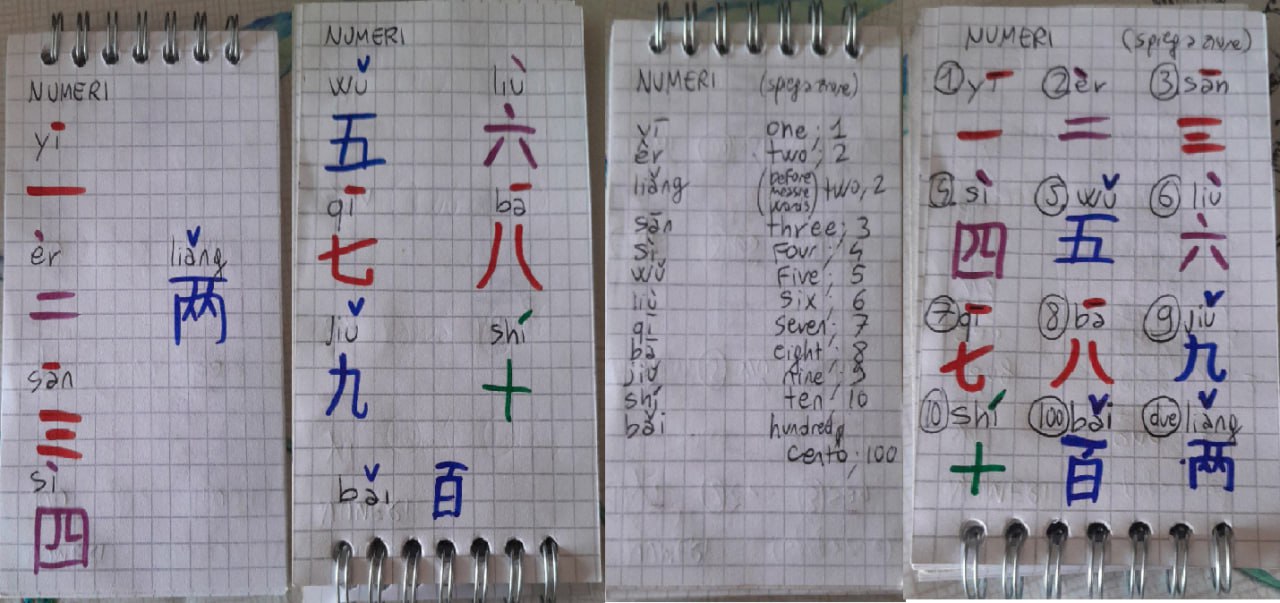 NUMERI
yī
一
èr liǎng
二 两
sān
三
sì
四
NUMERI
wǔ liù
五 六
qī bā
七 八
jiǔ shí
九 十
bǎi 百
NUMERI (spiegazione)
yī one; 1
èr two; 2
liǎng (before mesure words) two, 2
sān three; 3
sì four; 4
wǔ five; 5
liù six; 6
qī seven; 7
bā eight; 8
jiǔ nine; 9
shí ten; 10
bǎi hundred,
cento; 100
NUMERI (spiegazione)
① yī ② èr ③ sān
一 二 三
④ sì ⑤ wǔ ⑥ liù
四 五 六
⑦ qī ⑧ bā ⑨ jiǔ
七 八 九
⑩ shí (100) bǎi (due) liǎng
十 百 两